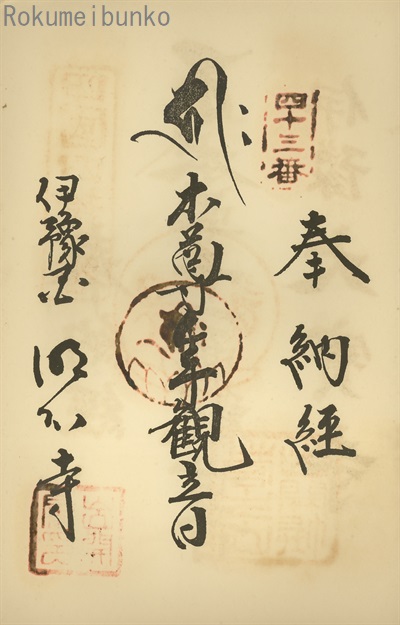 Rokumeibunko
四十三番
奉納經
本尊千手觀音
伊豫国 明石寺